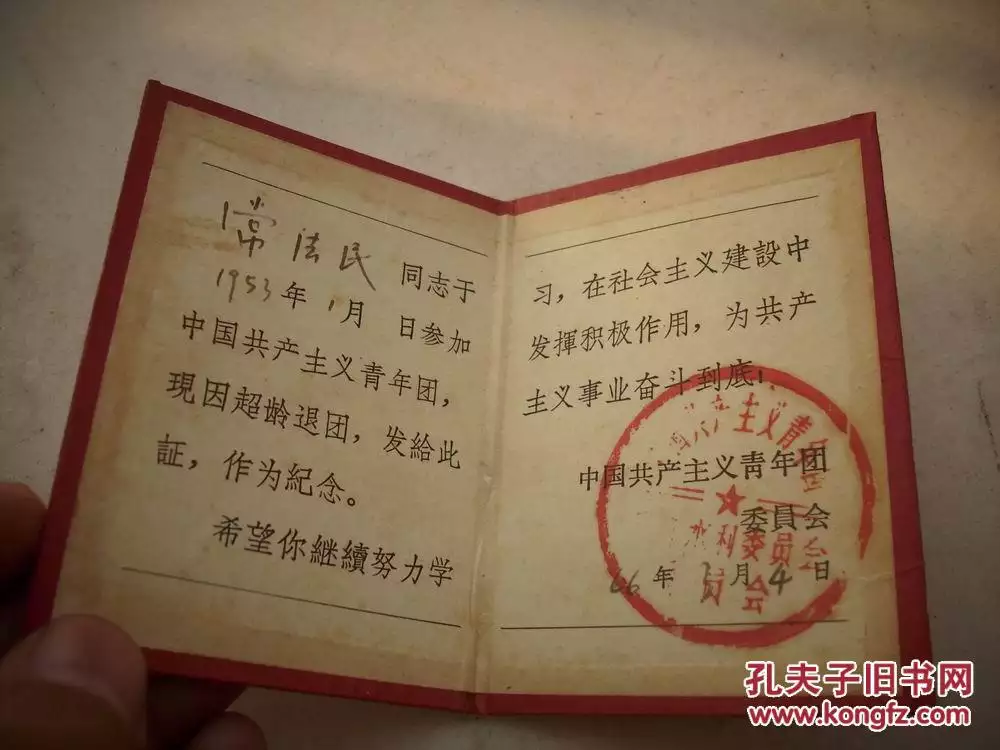 常法民 同志于
1953年1月 日参加
中国共产主义青年团，
現因超龄退团，发給此
証，作为紀念。
希望你継續努力学
习，在社会主义建設中
发揮积极作用，为共产
主义事业奋斗到底！
中国共产主义青年团
委員会
66年3月4日
孔夫子旧书网
www.kongfz.com